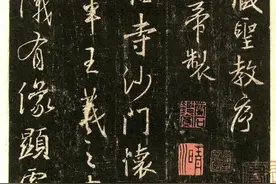 藏聖教序
帝製
寺沙門懷
軍王羲之
儀有像顯